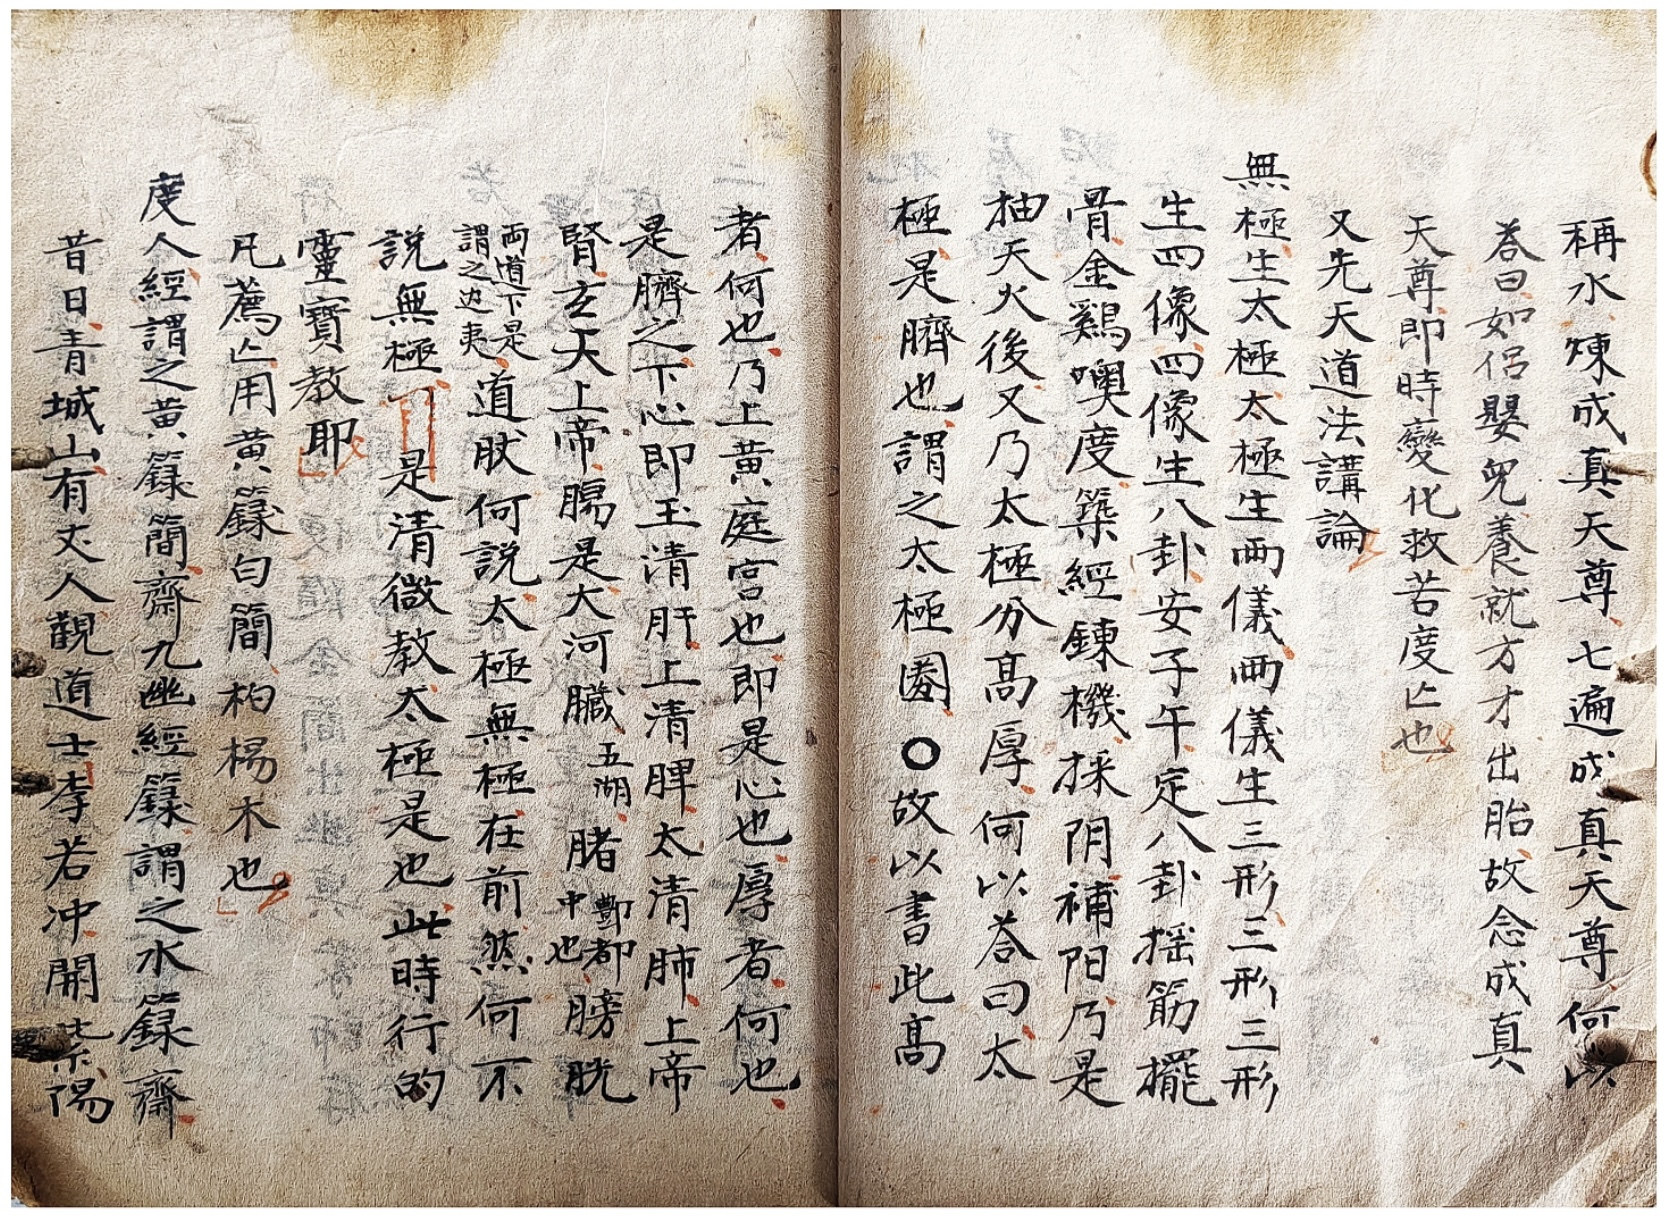 稱水煉成真天尊七遍成真天尊何以
荅曰如侣嬰児養就方才出胎故念成真
天尊即時變化救苦度亡也
又先天道法講論
無極生太極太極生両儀両儀生三形三形三形
生四像四像生八卦安子午定八卦揺筋擺
骨金鷄噢度築經錬機採阴補阳乃是
抽天火後又乃太極分髙厚何以荅曰太
極是臍也謂之太極圏〇故以書此髙
者何也乃上黄庭宫也即是心也厚者何也
是臍之下心即玉清肝上清脾太清肺上帝
腎玄天上帝腸是大河臟五湖䐗酆都中也膀胱
両道下是謂之边夷道肰何説太極無極在前然何不
説無極是清微教太極是也此時行的
靈寳教耶
凡薦亡用黄籙白簡杓楊木也
度人經謂之黄籙簡齋九幽經籙謂之水籙齋
昔日青城山有丈人觀道士李若冲開紫陽